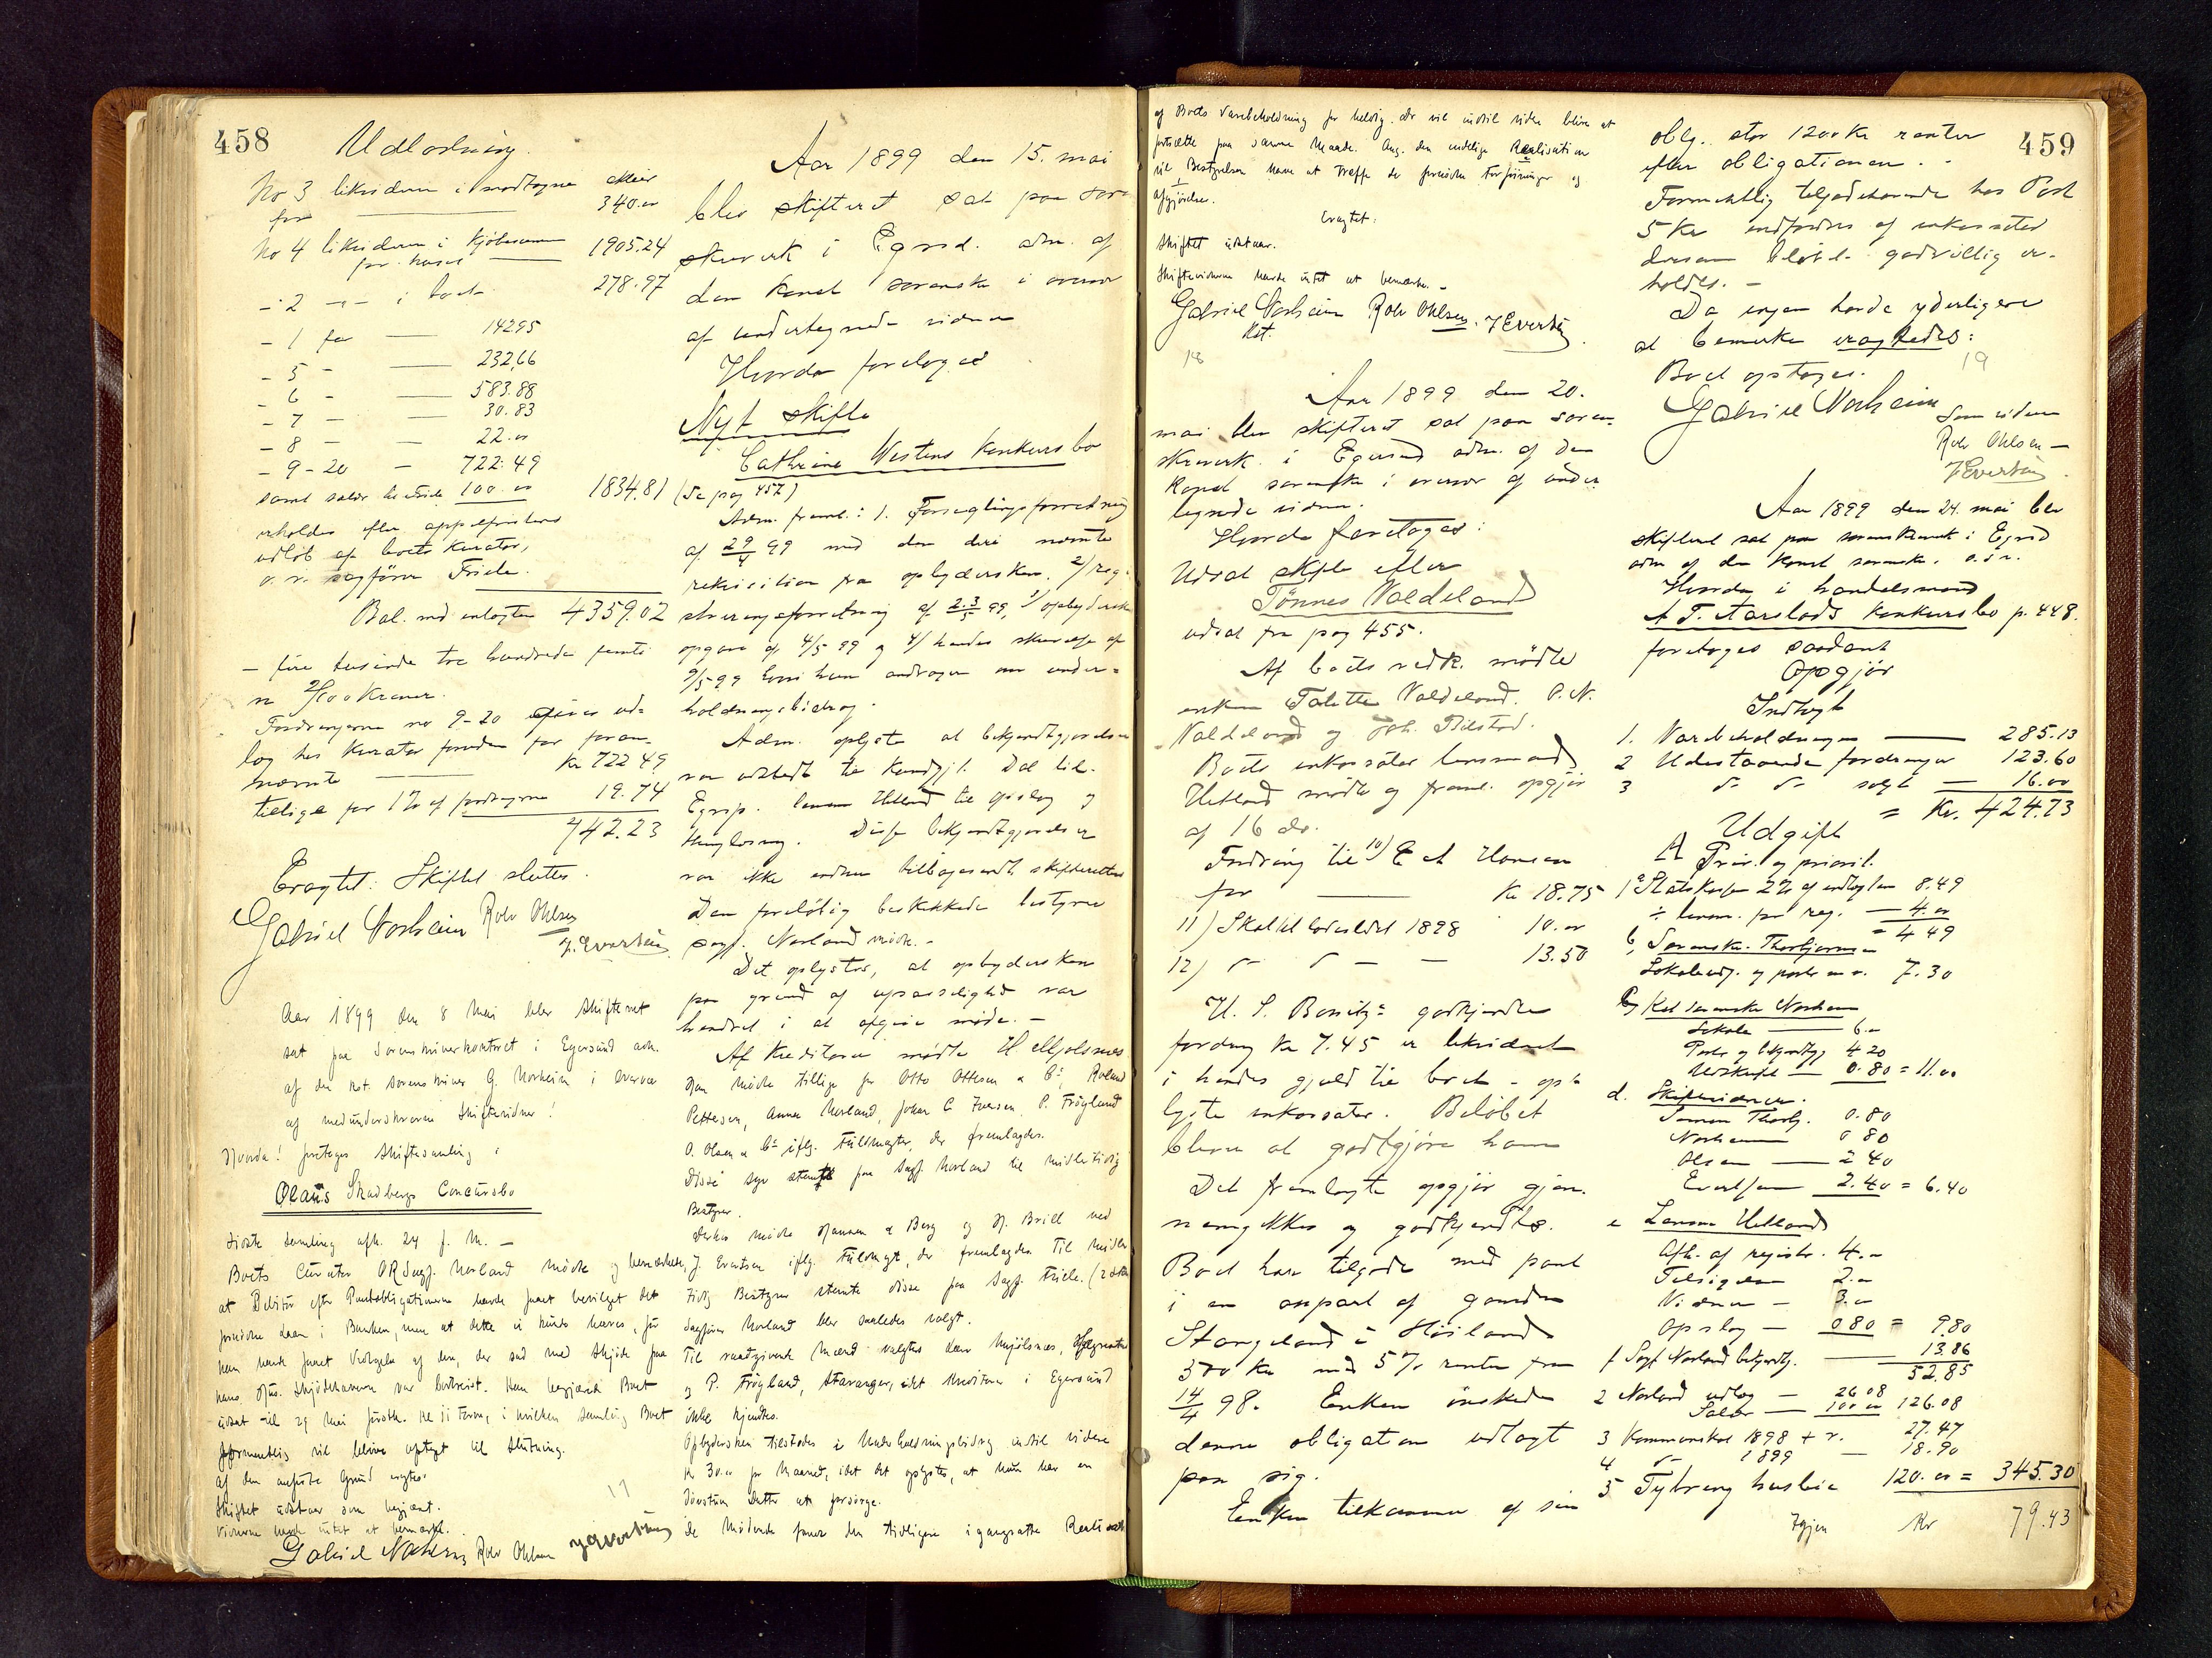 458
Udlodning.
No 3 likvideres i modtagne
for 340.00
No 4 likvideres i Kjøbesum 1905.24
for huset
- 2 -"- i boet 278.97
- 1 for — 142.95
- 5 - — 232.66
- 6 - — 583.88
- 7 — 30.83
- 8 — 22.00
- 9-20 — 722.49
samt salær 100.00 1834.81
erholdes efter appelfristens
udløb af boets kurator,
o. r. sagfører Friele.
Bal. med indtægten 4359.02
- fire tusinde tre hundrede femti
ni 2/100 Kroner.
Fordringerne no 9-20 ud-
log hos Kurator foruden for foran-
nævnte — Kr 722.49
tillige for 1% af fordringerne 19.74
742.23
Eragtet: Skiftet sluttes.
Gabriel Norheim Rolv Ohlsen
J. Evertsen
Aar 1899 den 8 Mai blev Skifteret
sat paa Sorenskriverkontoret i Egersund adm.
af den kst. sorenskriver G. Norheim i Overvær
af medunderskrevne Skiftevidner!
Hvorda! foretoges Skiftesamling i
Olaus Skadbergs Concursbo
sidste Samling afh. 24 f. M. —
Boets Curator ORSagf. Norland mødte og bemærkede,
at Debitor efter Pantobligationerne havde faaet bevilget det
fornødne Laan i Banken, men at dette ei kunde hæves, før
han havde faaet Vedtagelse af den, der sad med Skjøde paa
hans Hus. Skjødehaveren var bortreist. Han begjærede Boet
udsat til 29 Mai førstk. Kl 11 Form., i hvilken Samling Boet
formentlig vil blive optaget til Slutning.
Af den anførte Grund eragtes:
Skiftet udstaar som begjært.
Vidnerne havde intet at bemærke.
Gabriel Norheim Rolv Ohlsen J Evertsen
17
Aar 1899 den 15. mai
blev skifteret sat paa soren
skriverk. i Egrsd. adm. af
den konst sorenskr. i overvær
af undertegnede vidner
Hvorda foretoges
Nyt skifte
Cathrine Westens konkursbo
(Se pag 457)
Adm. freml.: 1. Forseglingsforretning
af 29/4 99 med den deri nævnte
rekvisition fra opbydersken, 2/ reg-
streringsforretning af 2.3/5 99, 3/ opbyderskens
opgave af 4/5 99 og 4/ hendes skrivelse af
9/5 99 hvori hun andrager om under-
holdningsbidrag.
Adm. oplyste at bekjendtgjørelsen
var udstedt til Kundgj. Dal til-
Egrsp. lensm. Hetland til opslag og
thinglæsning. Disse bekjendtgjørelser
var ikke endnu tilbagesendt skifteretten
Den foreløbig beskikkede bestyrer
sagf. Norland mødte. —
Det oplystes, at opbydersken
paa grund af upasselighed var
hindret i at afgive møde. —
Af Kreditorer mødte H. Mjølsnes
Han mødte tillige for Otto Ottesen & Co, Roland
Pettersen, Anna Norland, Johan C. Iversen, P. Frøyland
O. Olsen & Co iflg. Fuldmagter, der fremlagdes.
Disse syv stemte paa Sagf. Norland til midlertidig
Bestyrer.
Derhos mødte Hansen & Berg og H. Brill ved
J. Evertsen iflg. Fuldmagt, der fremlagdes. Til midler
tidig Bestyrer stemte disse paa Sagf. Friele.
Sagfører Norland blev saaledes valgt.
Til raadgivende Mænd valgtes dHrr Mjølsnes,
og P. Frøyland, Stavanger, idet Kreditorer i Egersund
ikke kjendtes.
Opbydersken tilstodes i Underholdningsbidrag indtil videre
Kr 30.00 pr Maaned, idet det oplystes, at hun har en
Datter at forsørge.
De Mødende fandt den tidligere igangsatte Realisation
459
af Boets Varebeholdning for heldig. Der vil indtil videre blive at
fortsætte paa samme Maade. Ang. den endelige Realisation
vil Bestyrelsen have at træffe de fornødne Forføininger og
Afgjørelser.
Eragtet:
Skiftet udstaar.
Skiftevidnerne havde intet at bemærke. —
Gabriel Norheim Rolv Ohlsen. J Evertsen
kst.
18
Aar 1899 den 20.
mai blev skifteret sat paa soren-
skriverk. i Egersund adm. af den
konst sorenskr. i overvær af under
tegnede vidner.
Hvorda foretoges:
Udsat skifte efter
Tønnes Valdeland
udsat fra pag 455.
Af boets vedk. mødte
enken Talette Valdeland. O. N.
Valdeland og Joh. Tilstad.
Boets inkassator lensmand
Hetland mødte og freml. opgjør
af 16 ds.
Fordring til 10) E A Hansen
for — Kr 18.75
11) Skat til 1898 10.00
12) " " — — 13.50
H. S. godkjendte
fordring Kr 7.45 er likvideret
i hendes gjæld til boet - op-
lyste inkassator. Beløbet
bliver at godtgjøre ham
Det fremlagte opgjør gjen-
nemgikkes og godkjendtes.
Boet har tilgode med pant
i en anpart af gaarden
Stangeland i Høiland
500 Kr med 5% renter fra
14/4 98. Enken ønskede
denne obligation udlagt
paa sig.
Enken tilkommer af sin
oblg. stor 1200 Kr renter
efter obligationen. -
Formentlig tilgodehavende hos Post
5 Kr indfordres af inkassator
dersom beløbet godvillig er-
holdes. —
Da ingen havde yderligere
at bemærke eragtedes:
Boet optages.
19
Gabriel Norheim
Som vidner
Rolv Ohlsen —
J Evertsen
Aar 1899 den 24. mai blev
skifteret sat paa sorenskriverk. i Egrsd
adm af den konst sorenskr. o.s.v.
Hvorda i handelsmand
A T. Aarstads konkursbo p. 448.
foretoges saadant
Opgjør
Indtægt
1. Varebeholdningen — 285.13
2 Udestaaende fordringer 123.60
3 do do solgt — 16.00
= Kr. 424.73
Udgift
A Priv. og priorit.
1 a Statskassen 2% af indtægten 8.49
÷ lensm. for reg. — 4.00
= 4.49
b, Sorenskr. Thorbjørnsen
Lokaleudg. og porto m.v. 7.30
c, Kst sorenskr Norheim
Lokale — 6.-
Porto og bekjendtgj 4.20
Udskrift — 0.80 = 11.00
d. Skiftevidner.
Simon Thorbj. 0.80
Norheim 0.80
Olsen — 2.40
Evertsen 2.40 = 6.40
e Lensm Hetland
Afh. af registr. 4.-
Tilsigelser 2.-
Vidner — 3.-
Opslag — 0.80 = 9.80
f Sagf Norland bekjendtg. — 13.86
52.85
2 Norland udlæg — 26.08
Salær — 100.00 126.08
3 Kommuneskat 1898 + r. 27.47
4 do 1899 — 18.90
5 Tybring husleie 120.00 = 345.30
Igjen Kr 79.43